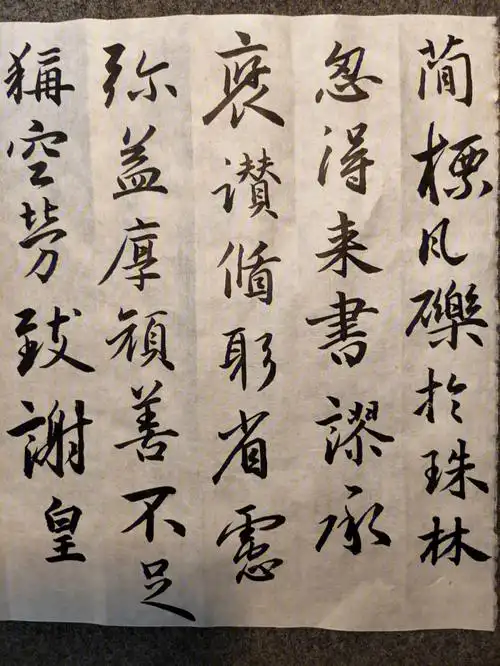 簡標瓦礫於珠林
忽得来書謬承
褒讃循躬省慮
弥益厚顔善不足
稱空勞致謝皇